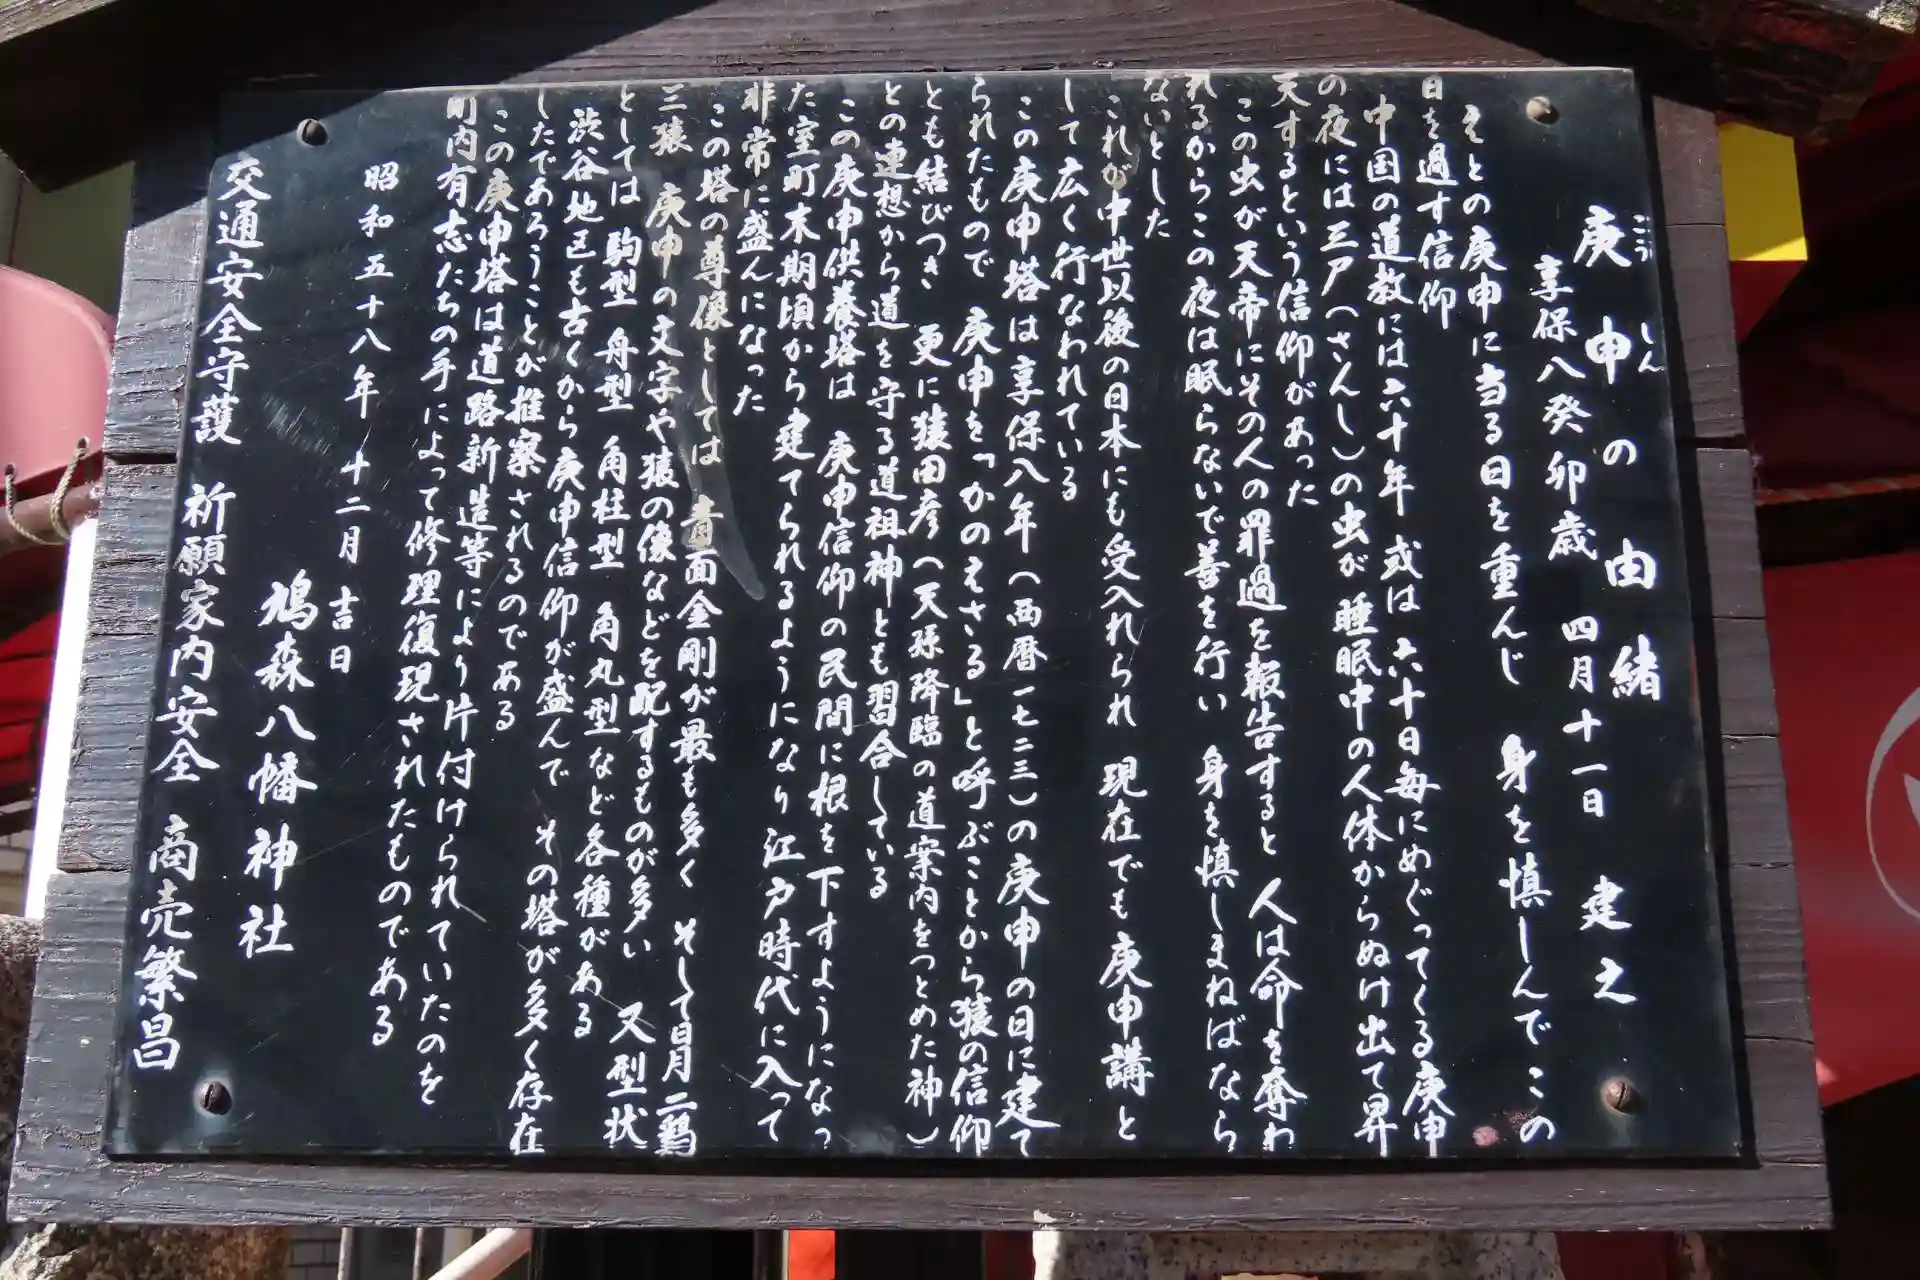 庚申の由緒
こう しん
享保八癸卯歳 四月十一日 建之
えとの庚申に当る日を重んじ 身を慎しんでこの
日を過す信仰
中国の道教には六十年 或は 六十日毎にめぐってくる庚申
の夜には三尸(さんし)の虫が睡眠中の人体からぬけ出て昇
天するという信仰があった
この虫が天帝にその人の罪過を報告すると 人は命を奪わ
れるからこの夜は眠らないで善を行い 身を慎しまねばなら
ないとした
これが中世以後の日本にも受入れられ 現在でも庚申講と
して広く行なわれている
この庚申塔は享保八年(西暦一七二三)の庚申の日に建て
られたもので 庚申を「かのえさる」と呼ぶことから猿の信仰
とも結びつき 更に猿田彦(天孫降臨の道案内をつとめた神)
との連想から道を守る道祖神とも習合している
この庚申供養塔は 庚申信仰の民間に根を下すようになっ
た室町末期頃から建てられるようになり江戸時代に入って
非常に盛んになった
この塔の尊像としては 青面金剛が最も多く そして日月二鶏
三猿 庚申の文字や猿の像などを配するものが多い 又型状
としては 駒型 舟型 角柱型 角丸型など各種がある
渋谷地区も古くから庚申信仰が盛んで その塔が多く存在
したであろうことが推察されるのである
この庚申塔は道路新造等により片付けられていたのを
町内有志たちの手によって修理復現されたものである
昭和五十八年 十二月 吉日
鳩森八幡神社
交通安全守護 祈願家内安全 商売繁昌